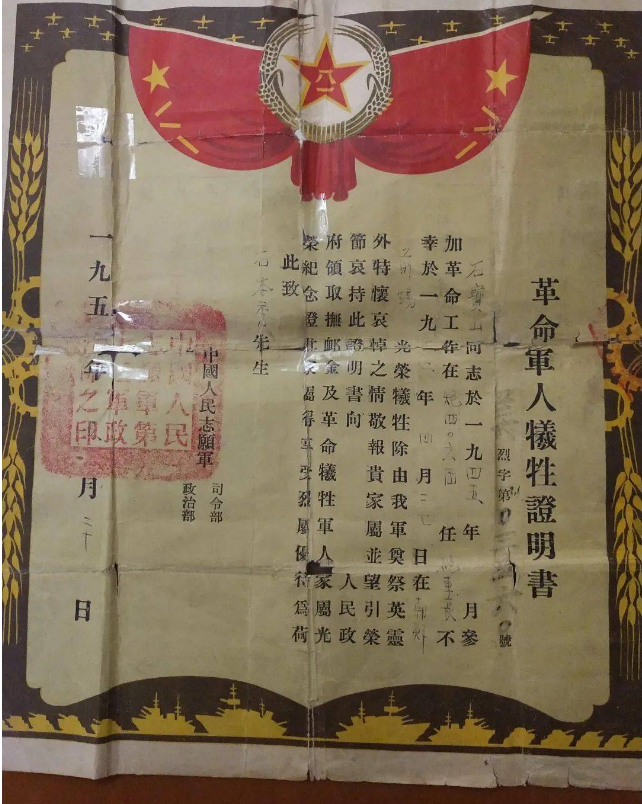 八一
革命軍人犧牲證明書
烈字第 號
石寶山同志於一九四五年 月參
加革命工作在 團任 不
幸於一九 年四月 日在
光榮犧牲除由我軍奠祭英靈
外特懷哀悼之情敬報貴家屬並望引榮
節哀持此證明書向 人民政
府領取撫卹金及革命犧牲軍人家屬光
榮紀念證 家屬得享受烈屬優待為荷
此致
石 先生
中國人民志願軍
司令部
政治部
中國人民
志願軍第
軍政
之印
一九五 年 月二十 日